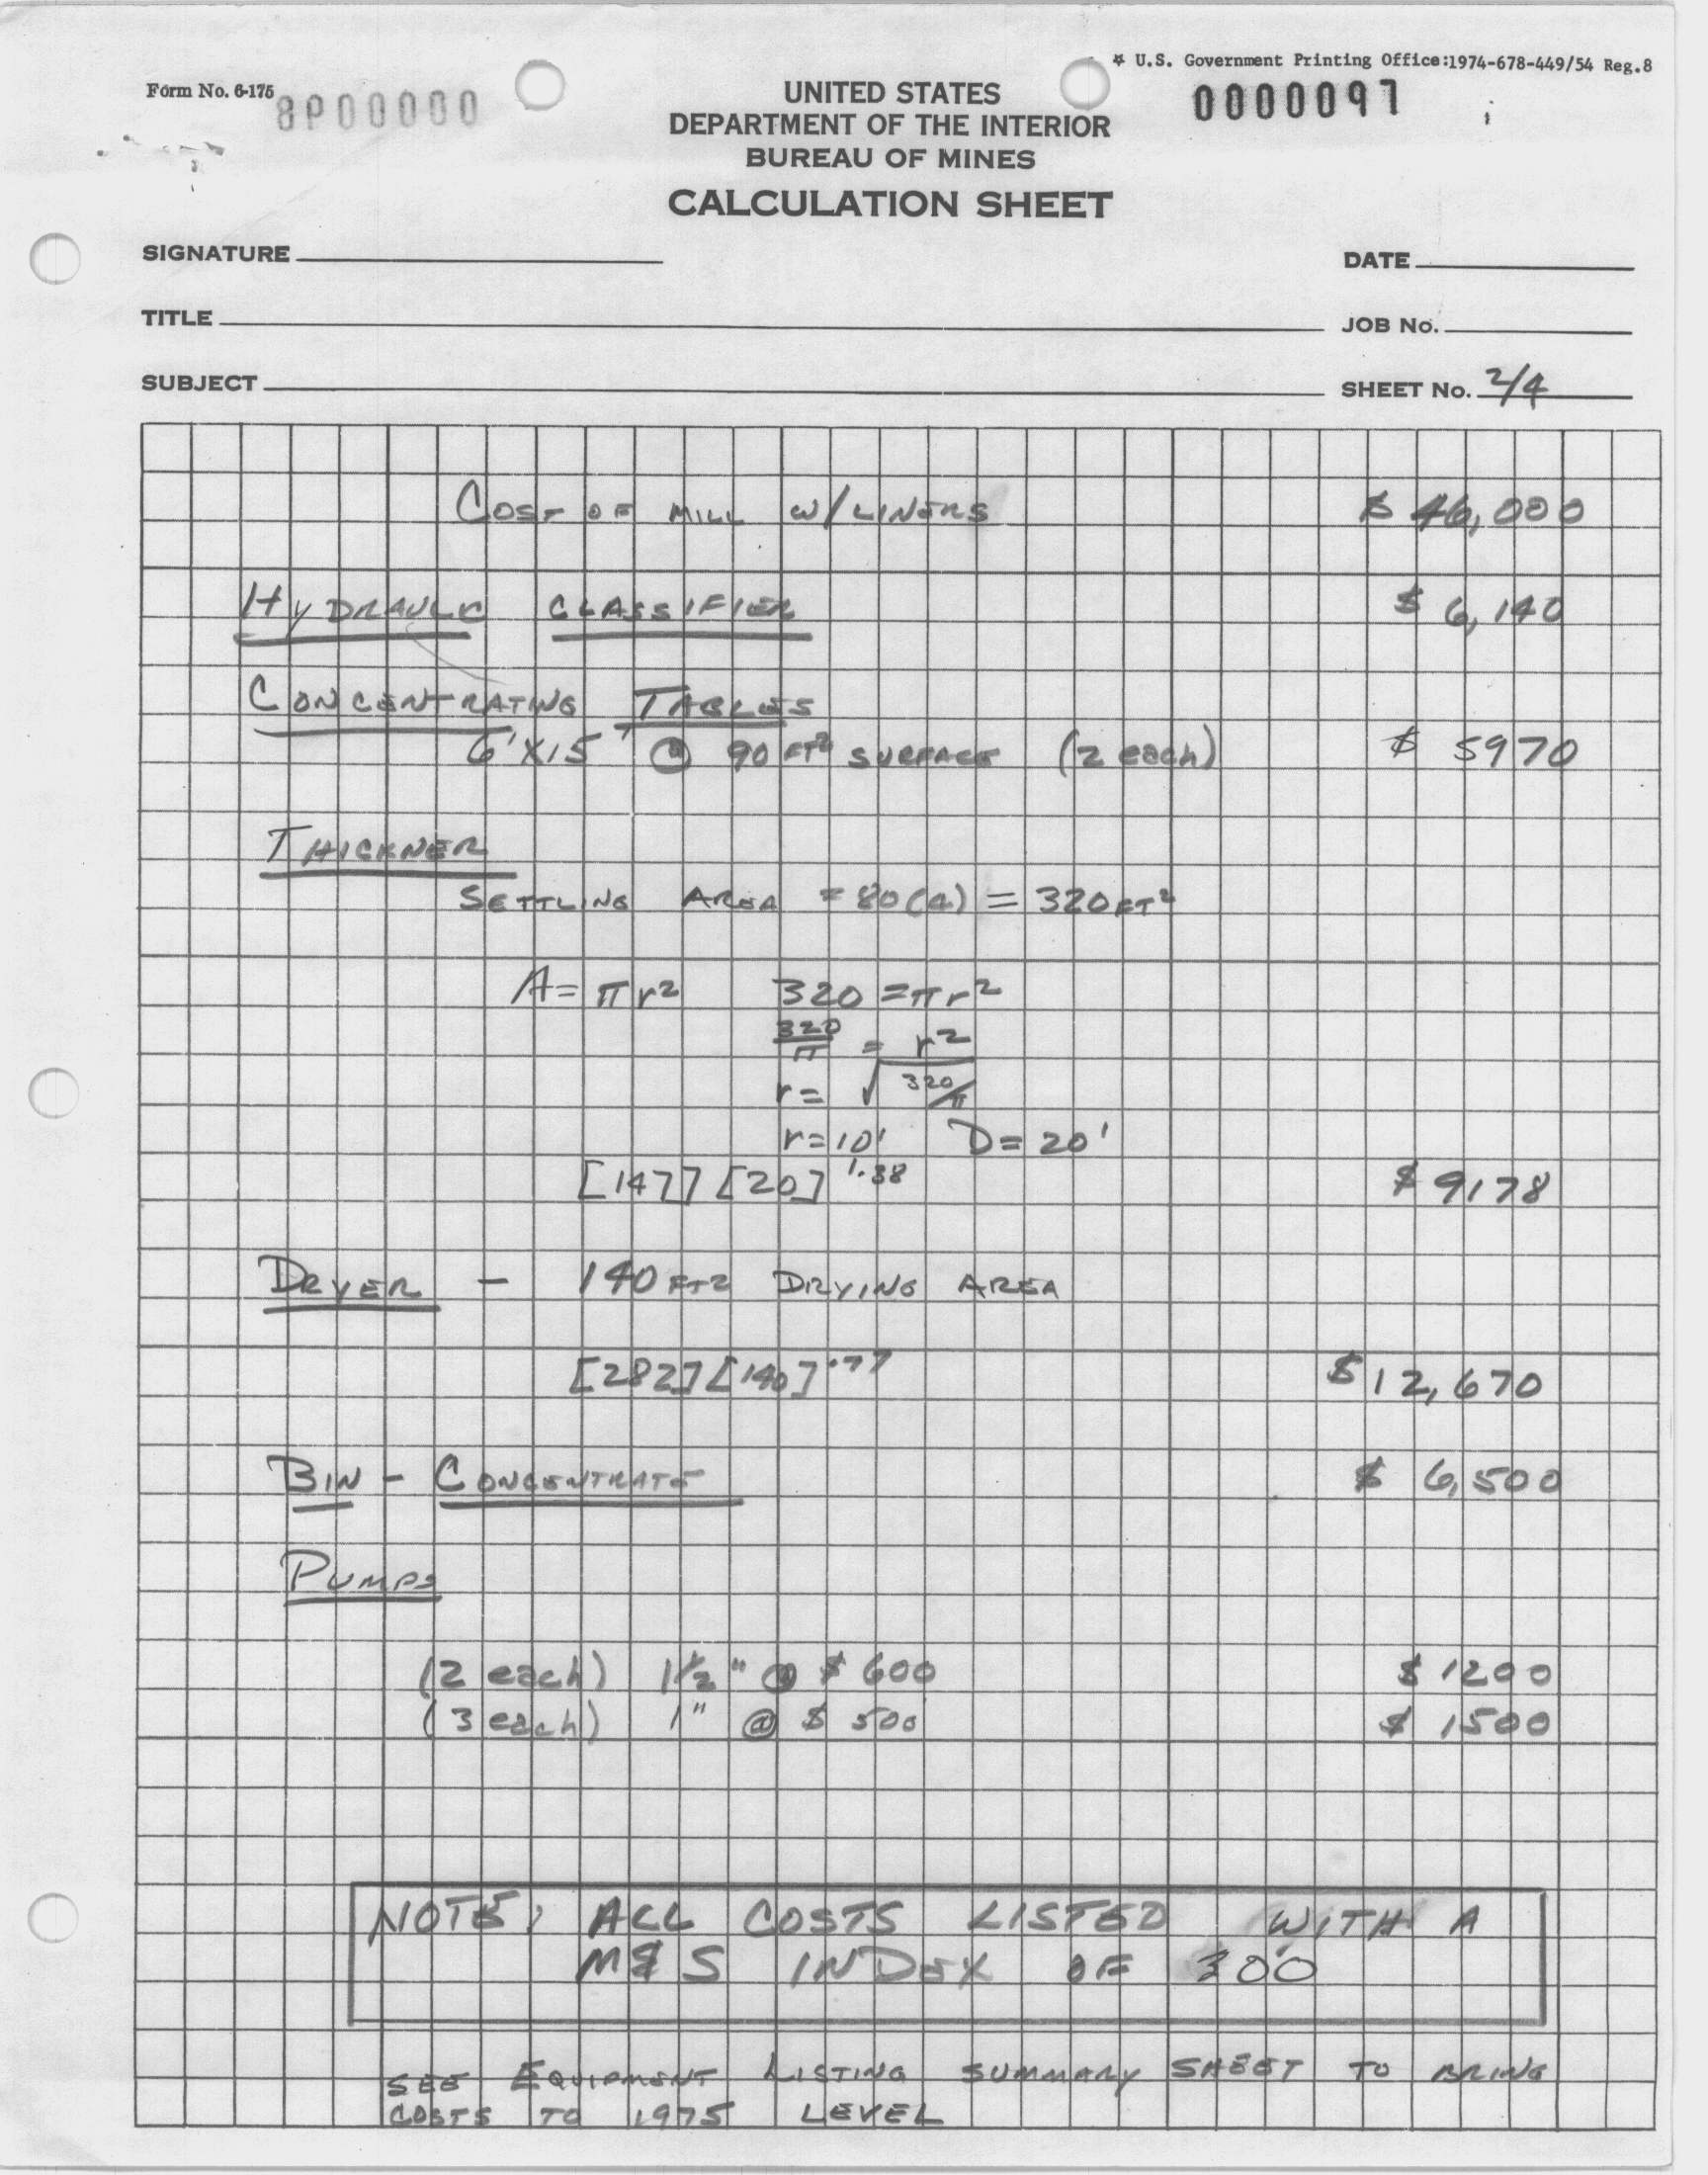 * U.S. Government Printing Office:1974-678-449/54 Reg.8
Form No. 6-175
0000097
UNITED STATES
DEPARTMENT OF THE INTERIOR
BUREAU OF MINES
CALCULATION SHEET
SIGNATURE
DATE
TITLE
JOB No.
SUBJECT
SHEET No. 2/4
COST OF MILL W/LINERS $ 46,000
HYDRAULC CLASSIFIER $ 6,140
CONCENTRATING TABLES
6'X15' @ 90 FT² SURFACE (2 each) $ 5970
THICKNER
SETTLING AREA = 80(4) = 320 FT²
A = π r² 320 = π r²
320/π = r²
r = √320/π
r = 10' D = 20'
[147] [20]^1.38 $ 9178
DRYER - 140 FT2 DRYING AREA
[282] [140]^.77 $ 12,670
BIN - CONCENTRATE $ 6,500
PUMPS
(2 each) 1½" @ $ 600 $ 1200
(3 each) 1" @ $ 500 $ 1500
NOTE: ALL COSTS LISTED WITH A
M&S INDEX OF 300
SEE EQUIPMENT LISTING SUMMARY SHEET TO BRING
COSTS TO 1975 LEVEL